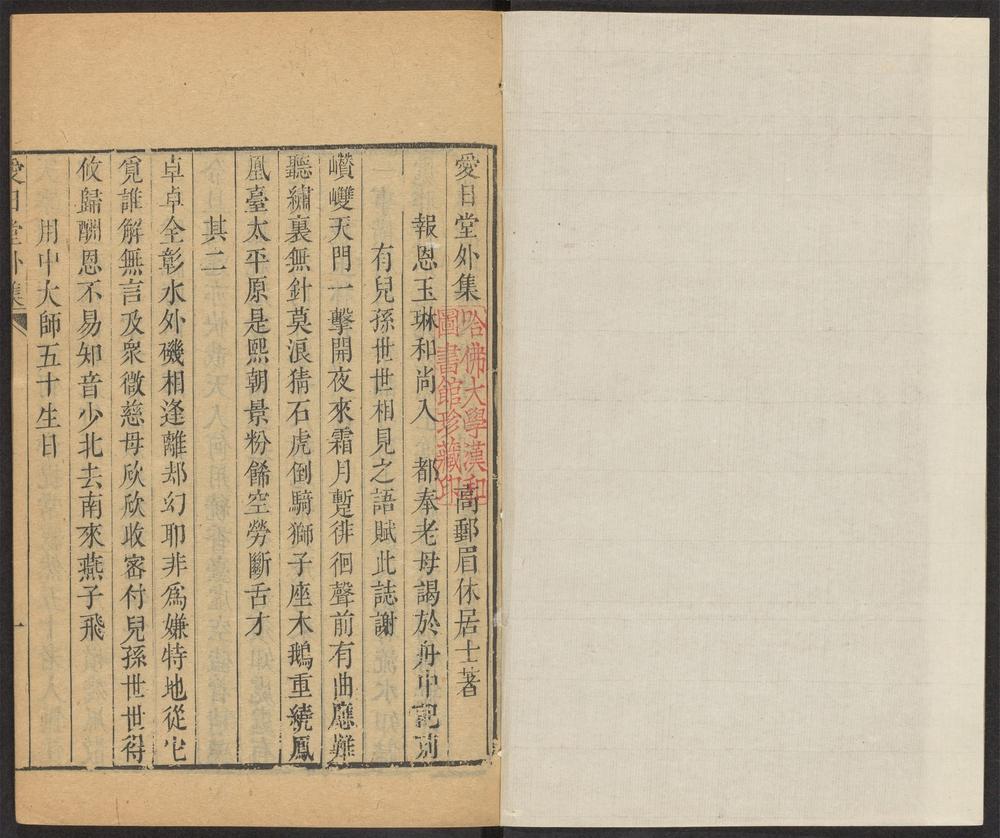 愛日堂外集
高郵眉休居士著
哈佛大學漢和
圖書館珍藏印
報恩玉琳和尚入　都奉老母謁於舟中記莂
有兒孫世世相見之語賦此誌謝
巑㟥天門一擊開夜來霜月蹔徘徊聲前有曲應難
聽繡裏無針莫浪猜石虎倒騎獅子座木鵝重繞鳳
凰臺太平原是熙朝景粉餙空勞斷舌才
其二
卓卓全彰水外磯相逢離却幻耶非爲嫌特地從它
覓誰解無言及衆微慈母欣欣收密付兒孫世世得
攸歸酬恩不易知音少北去南來燕子飛
用中大師五十生日
愛日堂外集
一